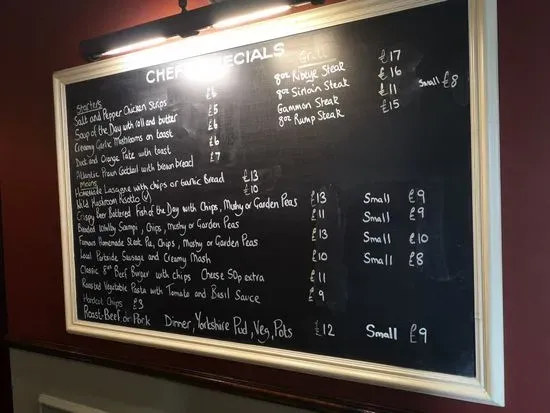 CHEF'S SPECIALS
Starters
Salt and Pepper Chicken Strips £6
Soup of the Day with roll and butter £5
Creamy Garlic Mushrooms on toast £6
Duck and Orange Pate with toast £6
Atlantic Prawn Cocktail with brown bread £7
Grill
8oz Ribeye Steak £17
8oz Sirloin Steak £16
Gammon Steak £11 Small £8
8oz Rump Steak £15
mains
Homemade Lasagne with chips or Garlic Bread £13
Wild Mushroom Risotto (v) £10
Crispy Beer Battered Fish of the Day with Chips, Mushy or Garden Peas £13 Small £9
Breaded Whitby Scampi, Chips, Mushy or Garden Peas £11 Small £9
Famous Homemade Steak Pie, Chips, Mushy or Garden Peas £13 Small £10
Local Sausage and Creamy Mash £10 Small £8
Classic 8oz Beef Burger with chips Cheese 50p extra £11
Roasted Vegetable Pasta with Tomato and Basil Sauce £9
Chips £3
Roast-Beef or Pork Dinner, Yorkshire Pud, Veg, Pots £12 Small £9